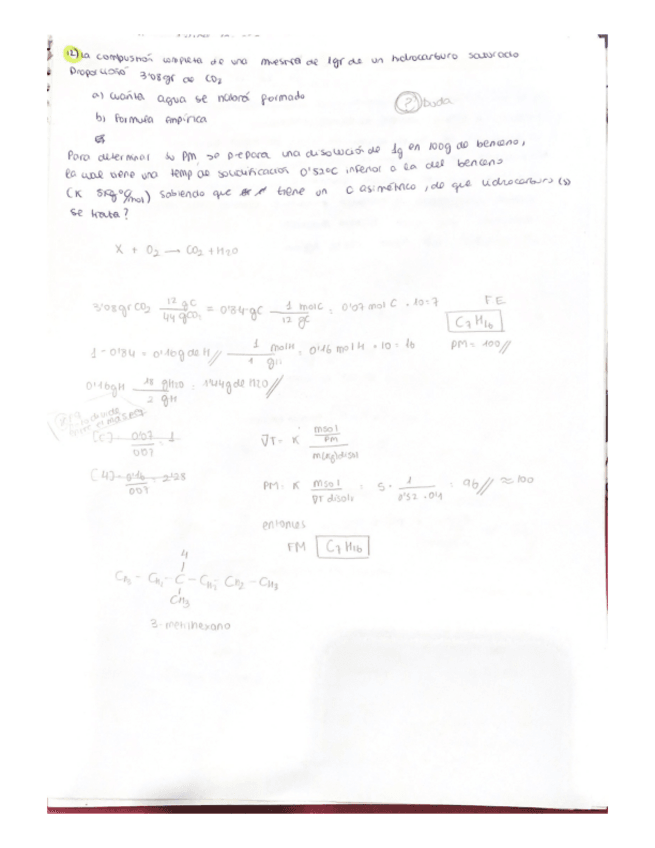 12) La combustión completa de una muestra de 1gr de un hidrocarburo saturado
Proporcionó 3'08gr de CO2
a) cuánta agua se habrá formado
? duda
b) Formula empírica
Para determinar su PM se prepara una disolución de 1g en 100g de benceno,
la cual tiene una temp de solidificación 0'52ºC inferior a la del benceno
(K 5Kgºc/mol) sabiendo que tiene un C asimétrico, de que hidrocarburo (s)
se trata?
X + O2 → CO2 + H2O
3'08gr CO2 12 gC / 44 gCO2 = 0'84 gC 1 molC / 12 gC = 0'07 mol C · 10 = 7
FE
C7 H16
PM = 100//
1 - 0'84 = 0'16g de H // 1 molH / 1 gH = 0'16 mol H · 10 = 16
0'16gH 18 gH2O / 2 gH = 1'44g de H2O //
[C] = 0'07 / 0'07 = 1
[H] = 0'16 / 0'07 = 2'28
∇T = K msol / PM / m(Kg)disol
PM = K msol / ∇T disolv = 5 · 1 / 0'52 · 0'1 = 96 // ≈ 100
entonces
FM C7 H16
H
CH3 - CH2 - C - CH2 - CH2 - CH3
CH3
3-metilhexano